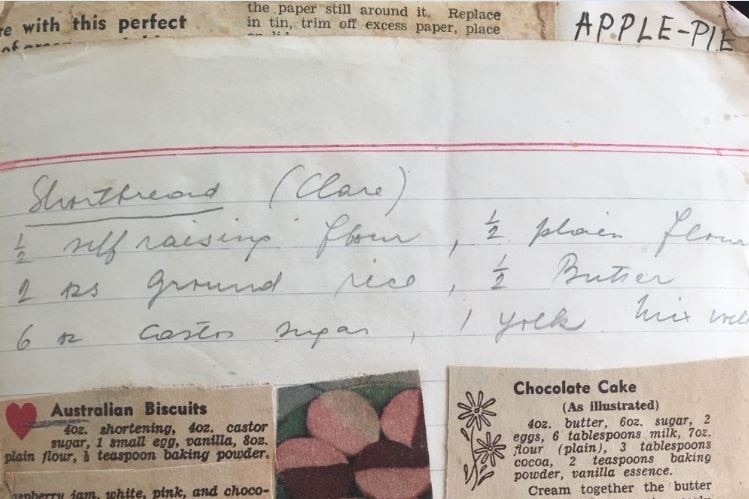 re with this perfect
the paper still around it. Replace
in tin, trim off excess paper, place
APPLE-PIE
Shortbread (Clare)
½ self raising flour, ½ plain flour
2 ozs ground rice, ½ Butter
6 oz castor sugar, 1 yolk. Mix well
Australian Biscuits
4oz. shortening, 4oz. castor
sugar, 1 small egg, vanilla, 8oz.
plain flour, ½ teaspoon baking powder.
raspberry jam, white, pink, and choco-
Chocolate Cake
(As illustrated)
4oz. butter, 6oz. sugar, 2
eggs, 6 tablespoons milk, 7oz.
flour (plain), 3 tablespoons
cocoa, 2 teaspoons baking
powder, vanilla essence.
Cream together the butter